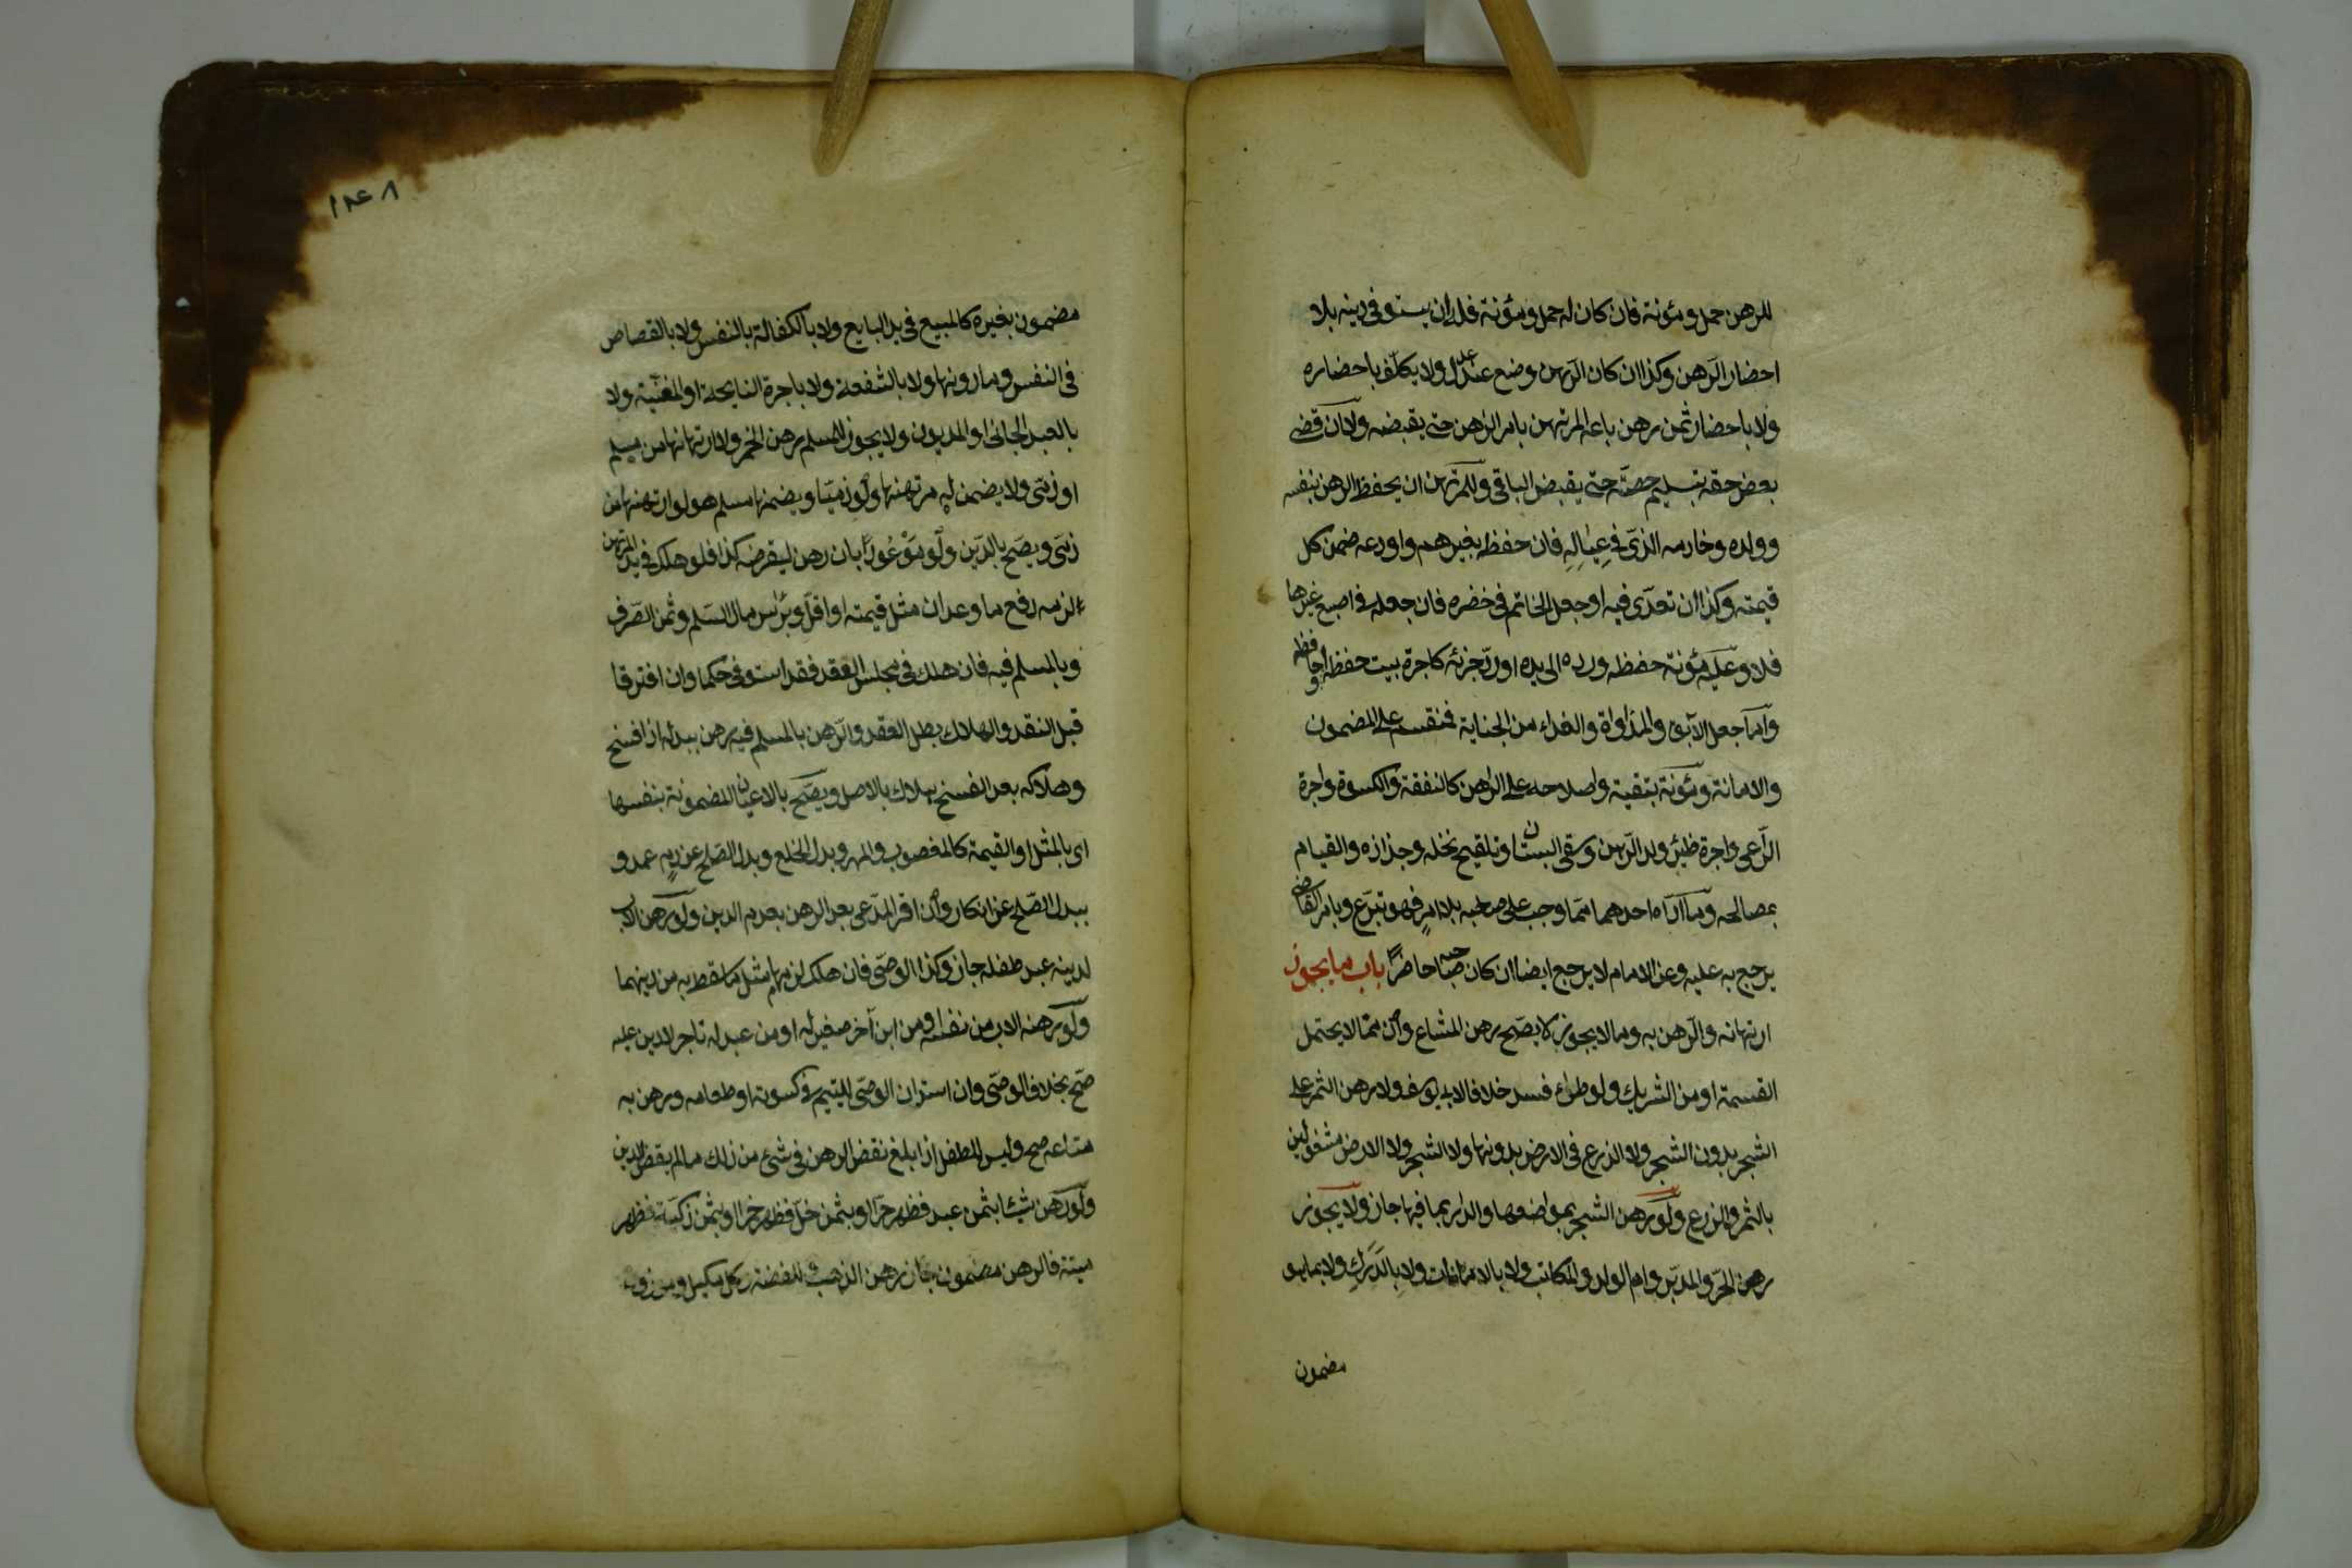 للرهن حمل ومؤنة فان كان له حمل ومؤنة فله ان يستوفى دينه بلا
احضار الرهن وكذا ان كان الرهن وضع عند عدل ولا يكلف باحضاره
ولا باحضار ثمن رهن باعه المرتهن بامر الراهن حتى يقبضه ولا ان قضى
بعض حقه تسليم حصته حتى يقبض الباقى وللمرتهن ان يحفظ الرهن بنفسه
وولده وخادمه الذى فى عياله فان حفظه بغيرهم او اودعه ضمن كل
قيمته وكذا ان تعدى فيه او جعل الخاتم فى خنصره فان جعله فى اصبع غيرها
فلا وعليه مؤنة حفظه ورده الى يده او رد جزئه كاجرة بيت حفظه او حافظه
واما جعل الآبق والمداواة والفداء من الجناية فمنقسم على المضمون
والامانة ومؤنة تبقيته واصلاحه على الراهن كالنفقة والكسوة واجرة
الراعى واجرة ظئر ولد الرهن وسقى البستان وتلقيح نخله وجذاذه والقيام
بمصالحه وما اداه احدهما مما وجب على صاحبه بلا امر فهو تبرع وبامر القاضى
يرجع به عليه وعن الامام لا يرجع ايضا ان كان صاحبه حاضرا باب ما يجوز
ارتهانه والرهن به وما لا يجوز لا يصح رهن المشاع وان مما لا يحتمل
القسمة او من الشريك ولو طرئ فسد خلافا لابى يوسف ولا رهن الثمر على
الشجر بدون الشجر ولا الزرع فى الارض بدونها ولا الشجر ولا الارض مشغولين
بالثمر والزرع ولو رهن الشجر بمواضعها والدار بما فيها جاز ولا يجوز
رهن الحر والمدبر وام الولد والمكاتب ولا بالامانات ولا بالدرك ولا بما هو
مضمون
١٤٨
مضمون بغيره كالمبيع فى يد البايع ولا بالكفالة بالنفس ولا بالقصاص
فى النفس وما دونها ولا بالشفعة ولا باجرة النايحة او المغنية ولا
بالعبد الجانى او المديون ولا يجوز للمسلم رهن الخمر ولا ارتهانها من مسلم
او ذمى ولا يضمن له مرتهنها ولو ذميا ويضمنها مسلم هو لو ارتهنها من
ذمى ويصح بالدين ولو موعودا بان رهن ليقرضه كذا فلو هلك فى يد المرتهن
لزمه دفع ما وعد ان مثل قيمته او اقل وبراس مال السلم وثمن الصرف
وبالمسلم فيه فان هلك فى مجلس العقد فقد استوفى حكما وان افترقا
قبل النقد والهلاك بطل العقد والرهن بالمسلم فيه رهن ببدله اذا فسخ
وهلاكه بعد الفسخ هلاك بالاصل ويصح بالاعيان المضمونة بنفسها
اى بالمثل او القيمة كالمغصوب والمهر وبدل الخلع وبدل الصلح عن دم عمد و
ببدل الصلح عن انكار وان اقر المدعى بعد الرهن بعدم الدين ولو رهن الاب
لدينه عبد طفله جاز وكذا الوصى فان هلك لزمهما مثل ما سقط به من دينهما
ولو رهنه الاب من نفسه او من ابن آخر صغير له او من عبد له تاجر لا دين عليه
صح بخلاف الوصى وان استدان الوصى لليتيم فى كسوته او طعامه ورهن به
متاعه صح وليس للطفل اذا بلغ نقض الرهن فى شئ من ذلك ما لم يقض الدين
ولو رهن شيئا بثمن عبد فظهر حرا او بثمن خل فظهر خمرا او بثمن ذكية فظهر
ميتة فالرهن مضمون جاز رهن الذهب والفضة وكل مكيل وموزون